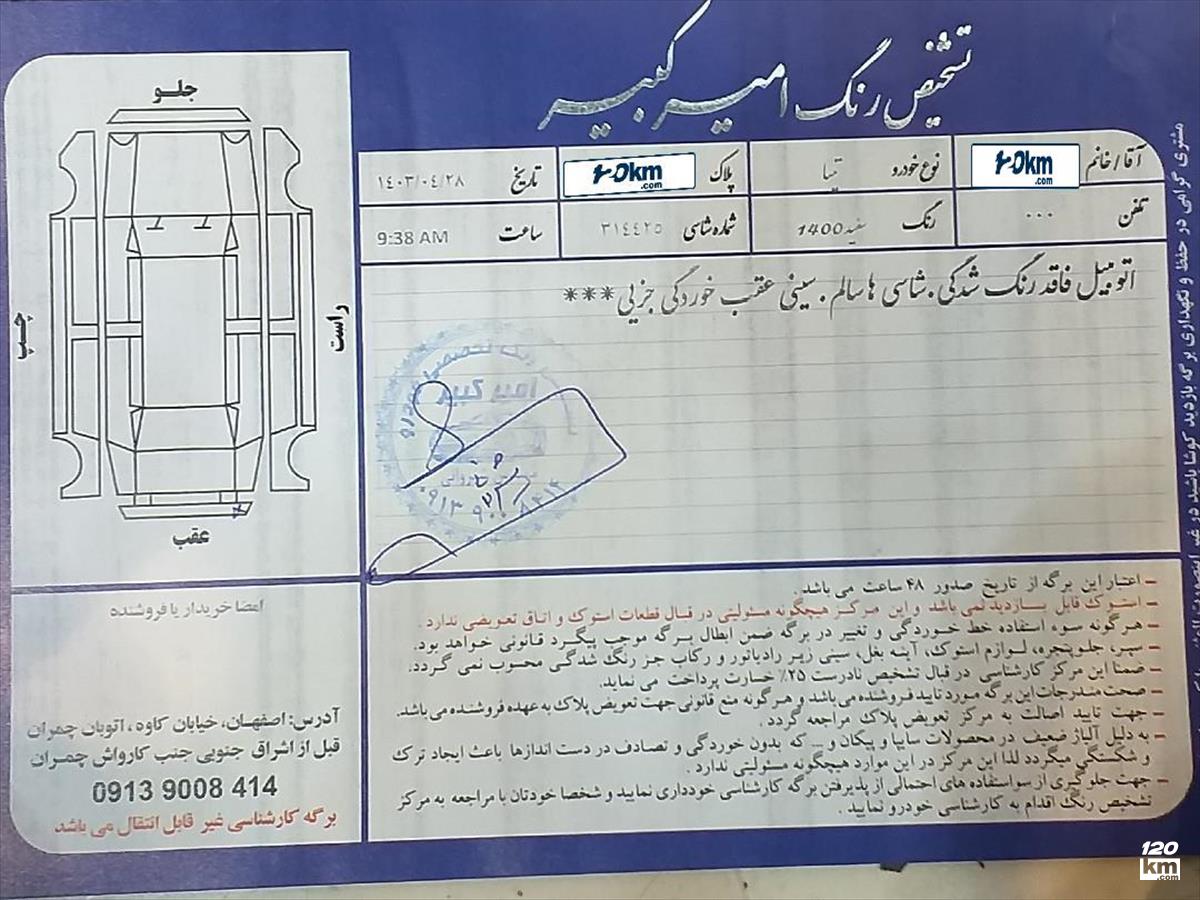 تشخیص رنگ امیر کبیر
آقا/خانم 120km.com نوع خودرو تیبا پلاک 120km.com تاریخ ۱۴۰۳/۰۴/۲۸
تلفن ۰۰۰ رنگ سفید1400 شماره شاسی ۳۱۴۴۲۵ ساعت 9:38 AM
اتومبیل فاقد رنگ شدگی. شاسی ها سالم. سینی عقب خوردگی جزیی***
جلو
چپ
راست
عقب
امیر کبیر
امضا خریدار یا فروشنده
آدرس: اصفهان، خیابان کاوه، اتوبان چمران
قبل از اشراق جنوبی جنب کارواش چمران
0913 9008 414
برگه کارشناسی غیر قابل انتقال می باشد
– اعتبار این برگه از تاریخ صدور ۴۸ ساعت می باشد.
– استوک قابل بازدید نمی باشد و این مرکز هیچگونه مسئولیتی در قبال قطعات استوک و اتاق تعویضی ندارد.
– هرگونه سوء استفاده خط خوردگی و تغییر در برگه ضمن ابطال برگه موجب پیگرد قانونی خواهد بود.
– سپر، جلوپنجره، لوازم استوک، آینه بغل، سینی زیر رادیاتور و رکاب جز رنگ شدگی محسوب نمی گردد.
– ضمنا این مرکز کارشناسی در قبال تشخیص نادرست ۲۵٪ خسارت پرداخت می نماید.
– صحت مندرجات این برگه مورد تایید فروشنده می باشد و هرگونه منع قانونی جهت تعویض پلاک به عهده فروشنده می باشد.
– جهت تایید اصالت به مرکز تعویض پلاک مراجعه گردد.
– به دلیل آلیاژ ضعیف در محصولات سایپا و پیکان و ... که بدون خوردگی و تصادف در دست اندازها باعث ایجاد ترک
و شکستگی میگردد لذا این مرکز در این موارد هیچگونه مسئولیتی ندارد.
– جهت جلوگیری از سواستفاده های احتمالی از پذیرفتن برگه کارشناسی خودداری نمایید و شخصا خودتان با مراجعه به مرکز
تشخیص رنگ اقدام به کارشناسی خودرو نمایید.
مشتری گرامی در حفظ و نگهداری برگه بازدید کوشا باشید در غیر
120km.com